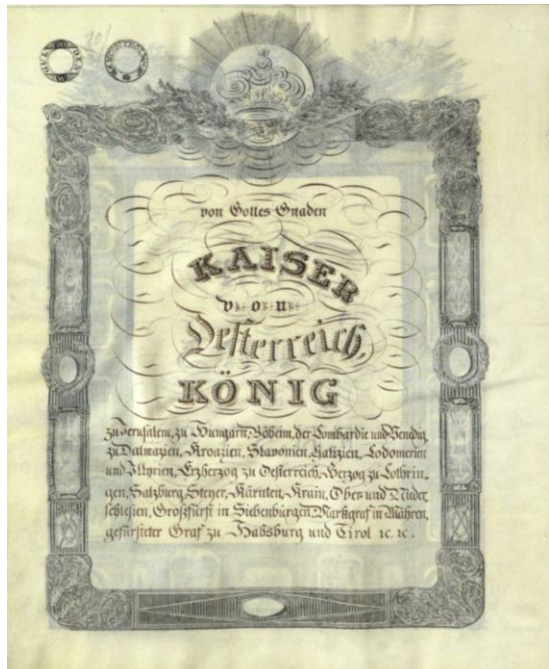 von Gottes Gnaden
KAISER
von
Oesterreich,
KÖNIG
zu Jerusalem, zu Hungarn, Böheim, der Lombardie und Venedig,
zu Dalmazien, Kroazien, Slavonien, Galizien, Lodomerien
und Illyrien, Erzherzog zu Oesterreich, Herzog zu Lothrin„
gen, Salzburg, Steyer, Kärnten, Krain, Ober und Nider
schlesien, Großfürst in Siebenbürgen, Markgraf in Mähren,
gefürsteter Graf zu Habsburg und Tirol ꝛc. ꝛc.